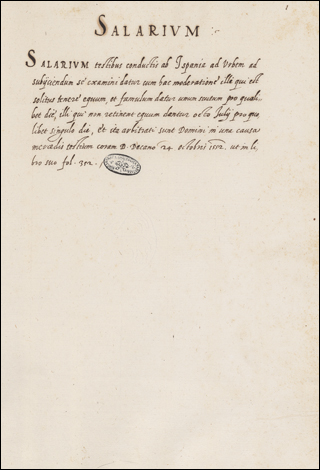 SALARIVM
SALARIVM testibus conductis ab Ispania ad Vrbem ad
subijciendum se examini datur cum hac moderatione illa qui est
solitus tenere equum, et famulum datur unum scutum pro quali-
bet die, illi qui non retinent equum dantur octo Julij pro qua
libet singulo die, et ita arbitrati sunt Domini in una causa
testium coram D. Decano 24 octobris 1552. ut in li
bro suo fol. 312.